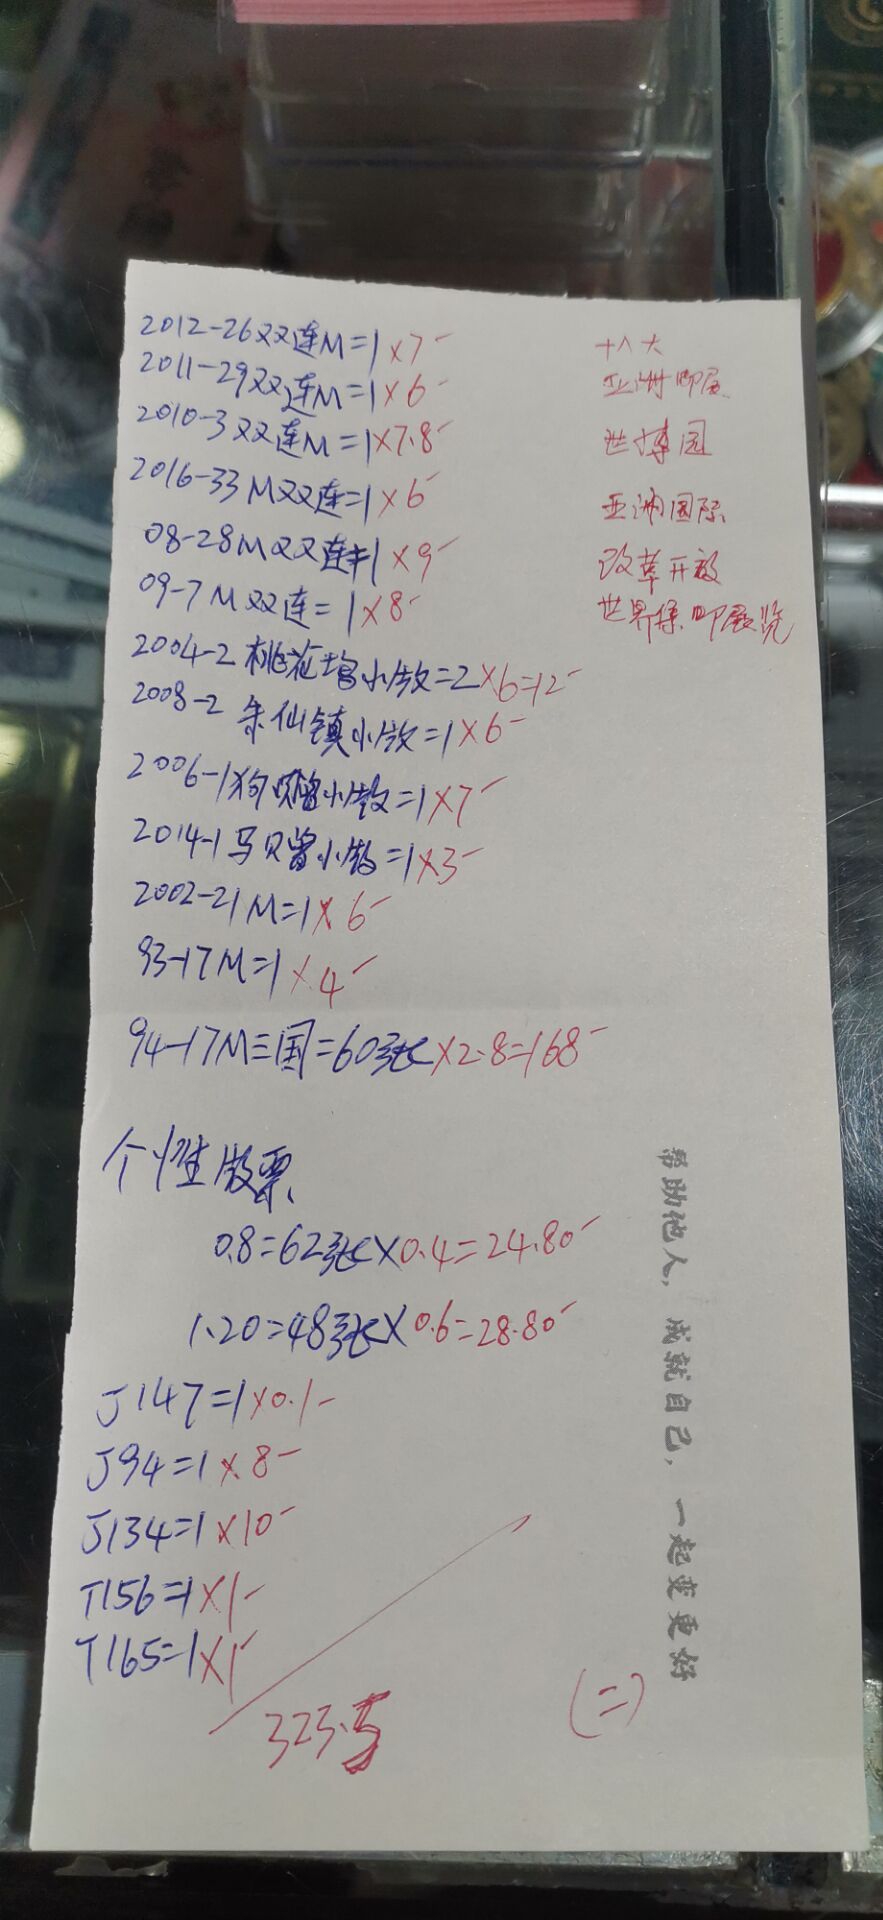 2012-26双连M=1×7- 十八大
2011-29双连M=1×6- 亚洲邮展
2010-3双连M=1×7.8- 世博园
2016-33M双连=1×6- 亚洲国际
08-28M双连=1×9- 改革开放
09-7M双连=1×8- 世界集邮展览
2004-2桃花坞小版=2×6=12-
2008-2朱仙镇小版=1×6-
2006-1狗赠小版=1×7-
2014-1马贝曾小版=1×3-
2002-21M=1×6-
93-17M=1×4-
94-17M三国=60张×2.8=168-
个性版票
0.8=62张×0.4=24.80-
1.20=48张×0.6=28.80-
J147=1×0.1-
J94=1×8-
J134=1×10-
T156=1×1-
T165=1×1-
323.5
(二)
帮助他人，成就自己，一起变更好